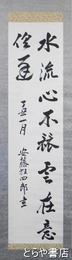 水流心不競雲在意
俱遲
一月 安藤 四郎書
とらや書房